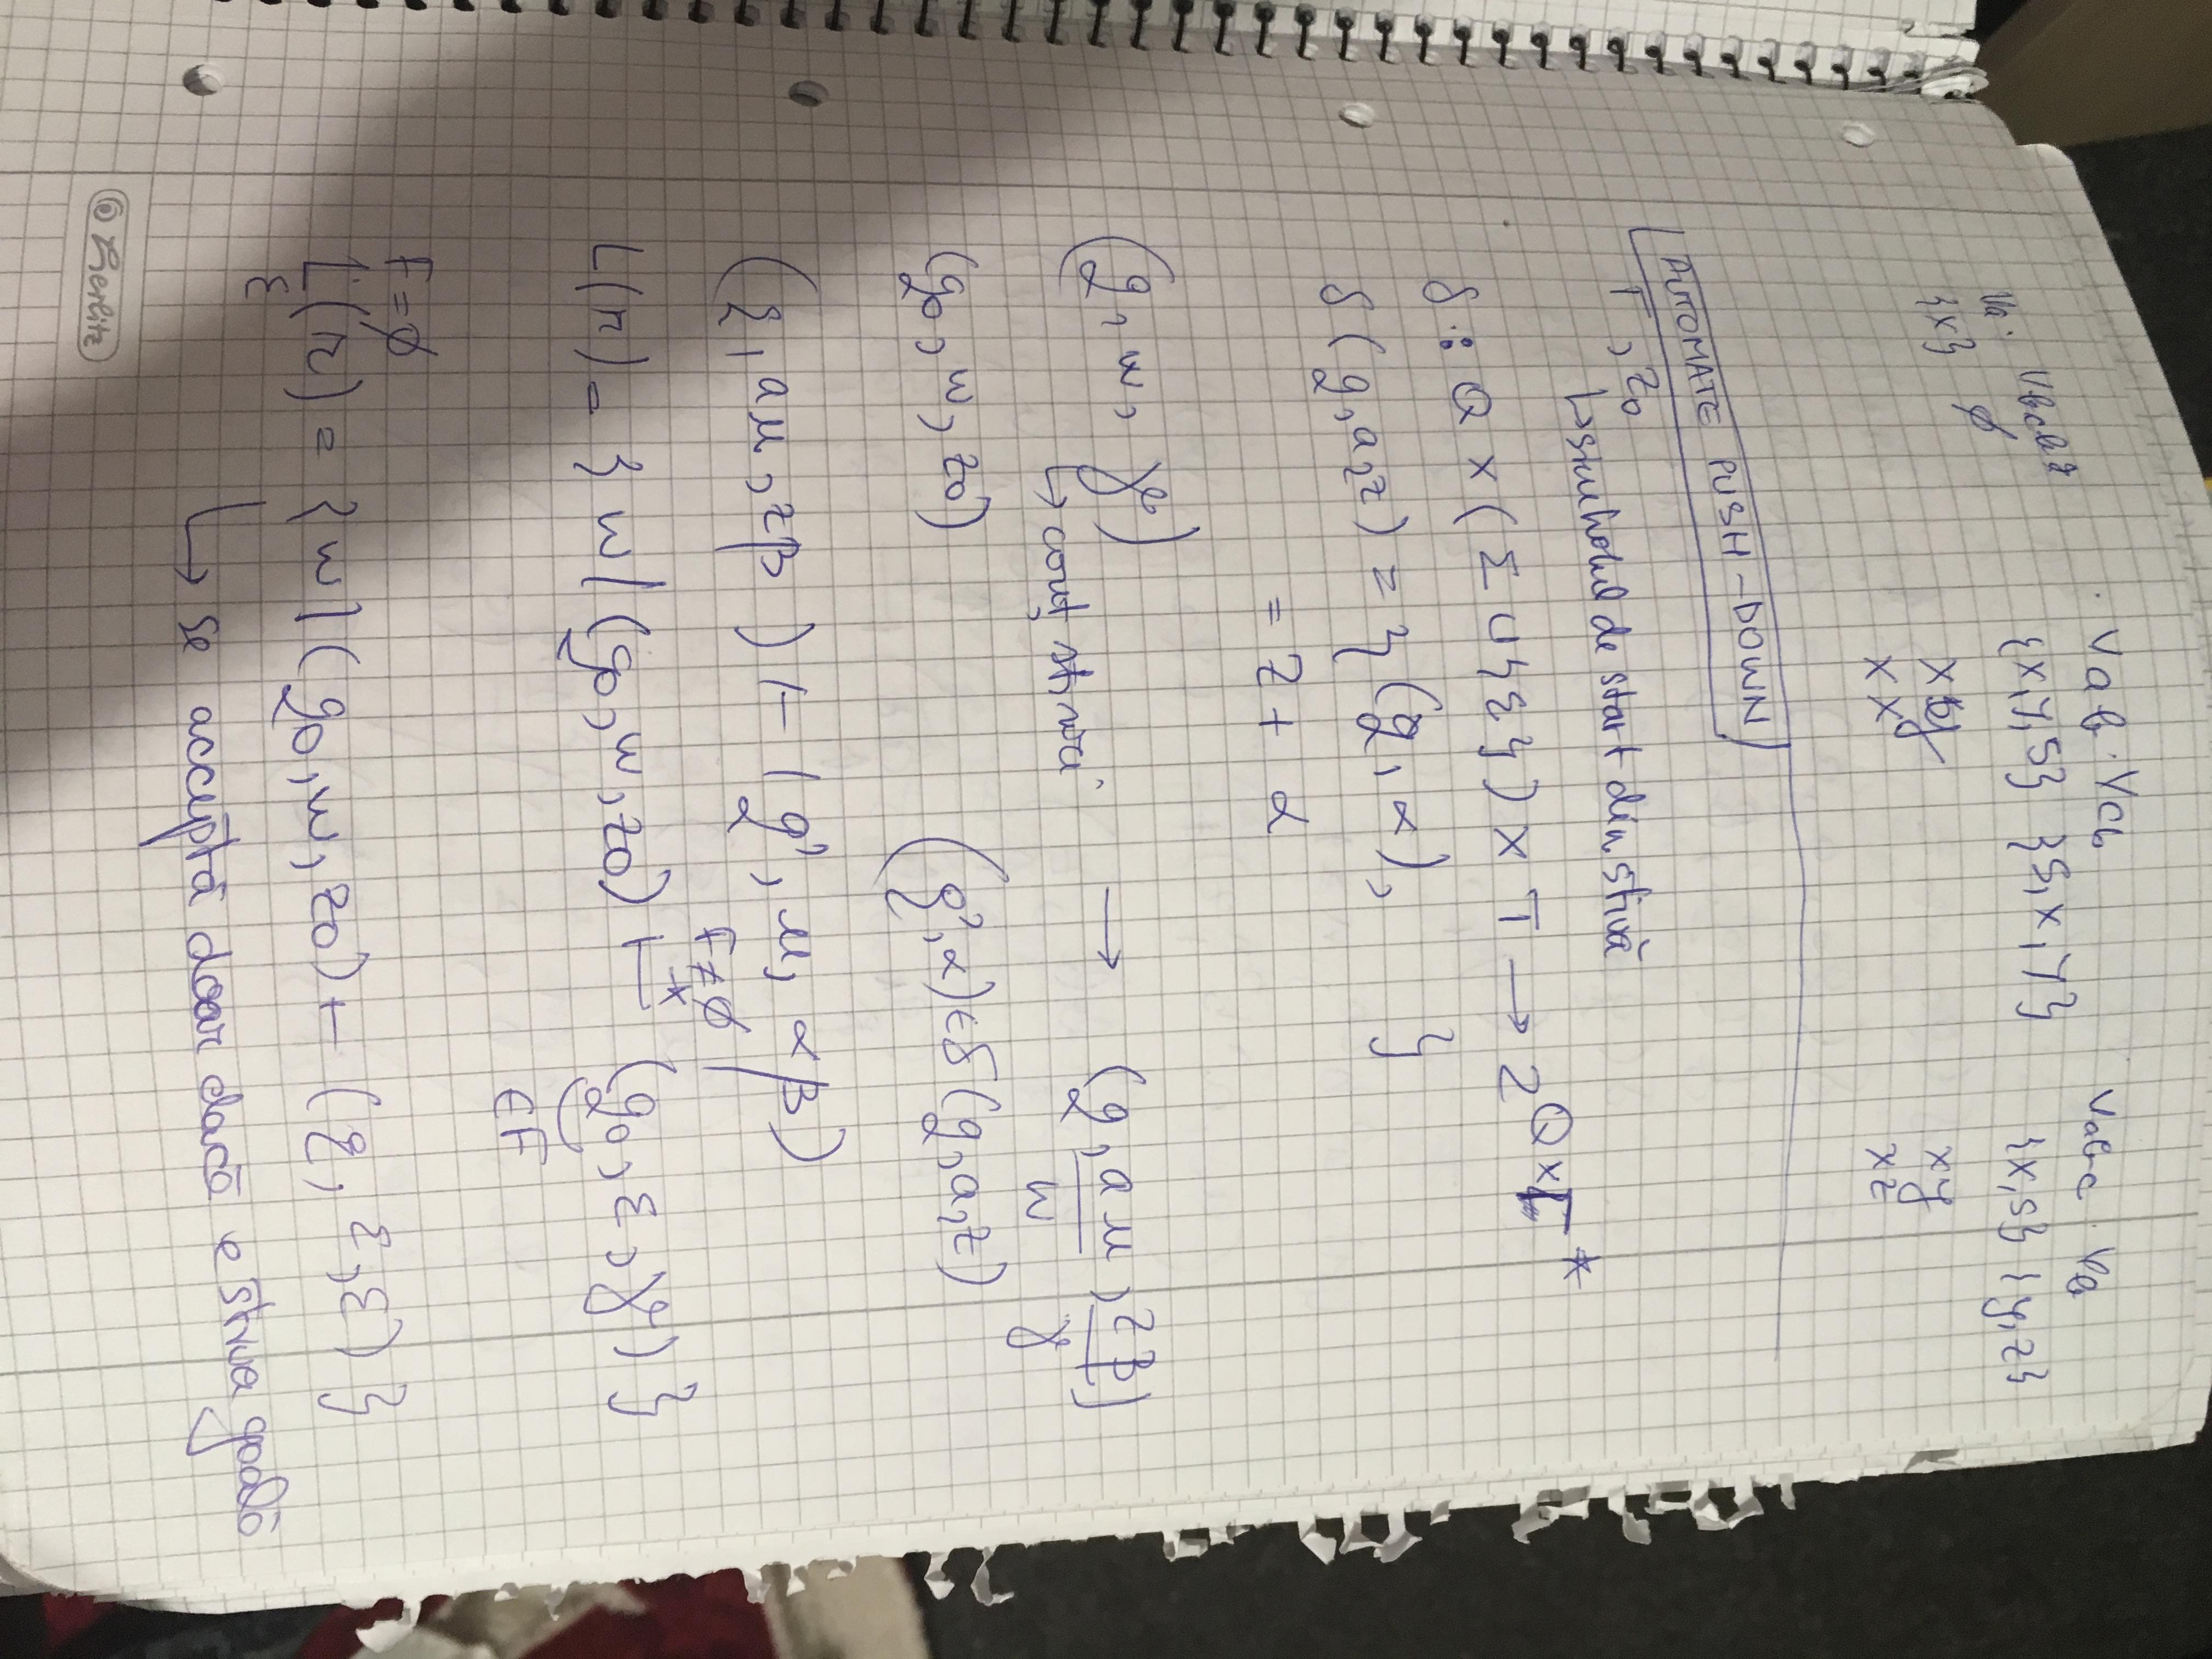 Vab · Vcb
Vabc · Vb
Va · Vbcb
{x,y,S} {S,x,y}
{x,S} {y,z}
{x} ∅
xy
xy
xx
xz
AUTOMATE PUSH-DOWN
Γ, z0
↳ simbolul de start din stivă
δ : Q × (Σ ∪ {ε}) × Γ → 2^Q×Γ*
δ(q,a,z) = {(q,α), }
= z + α
(q, w, γ) → (q, au, zβ)
↳ conț stivei w γ
(q0, w, z0) (q', α) ∈ δ(q,a,z)
(q, au, zβ) ⊢ (q', u, αβ)
F≠∅
L(r) = {w | (q0, w, z0) ⊢* (q0, ε, γ)}
∈F
F=∅
Lε(r) = {w | (q0, w, z0) ⊢ (q, ε, ε)}
↳ se acceptă doar dacă e stiva goală
Herlitz